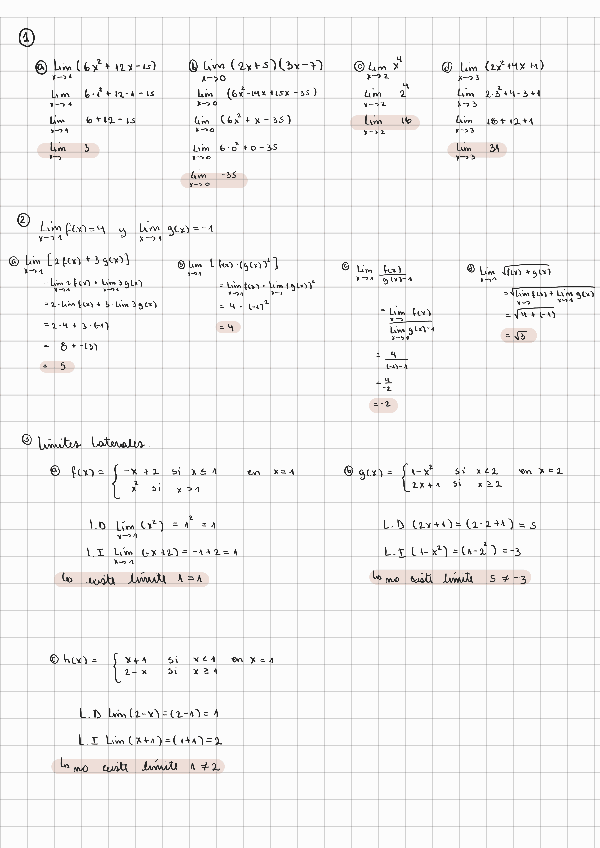 1
a) Lim x→1 (6x² + 12x - 15)
Lim x→1 6·1² + 12·1 - 15
Lim x→1 6 + 12 - 15
Lim x→ 3
b) Lim x→0 (2x+5)(3x-7)
Lim x→0 (6x² - 14x + 15x - 35)
Lim x→0 (6x² + x - 35)
Lim x→0 6·0² + 0 - 35
Lim x→0 -35
c) Lim x→2 x⁴
Lim x→2 2⁴
Lim x→2 16
d) Lim x→3 (2x² + 4x + 1)
Lim x→3 2·3² + 4·3 + 1
Lim x→3 18 + 12 + 1
Lim x→3 31
2
Lim x→1 f(x) = 4 y Lim x→1 g(x) = -1
a) Lim x→1 [2f(x) + 3g(x)]
Lim x→1 2f(x) + Lim x→1 3g(x)
= 2·Lim f(x) + 3·Lim 3g(x)
= 2·4 + 3·(-1)
= 8 + -(3)
= 5
b) Lim x→1 [f(x)·(g(x))²]
= Lim x→1 f(x) · Lim x→1 (g(x))²
= 4·(-1)²
= 4
c) Lim x→1 f(x) / g(x)-1
= Lim x→1 f(x) / Lim x→1 g(x)-1
= 4 / (-1)-1
= 4 / -2
= -2
d) Lim x→1 √f(x) + g(x)
= √Lim x→1 f(x) + Lim x→1 g(x)
= √4 + (-1)
= √3
3 Límites Laterales.
a) f(x) = { -x + 2 si x ≤ 1 en x = 1
x² si x > 1
L.D Lim x→1 (x²) = 1² = 1
L.I Lim x→1 (-x+2) = -1+2 = 1
↳ existe límite 1 = 1
b) g(x) = { 1-x² si x < 2 en x = 2
2x+1 si x ≥ 2
L.D (2x+1) = (2·2+1) = 5
L.I (1-x²) = (1-2²) = -3
↳ no existe límite 5 ≠ -3
c) h(x) = { x+1 si x < 1 en x = 1
2-x si x ≥ 1
L.D Lim (2-x) = (2-1) = 1
L.I Lim (x+1) = (1+1) = 2
↳ no existe límite 1 ≠ 2